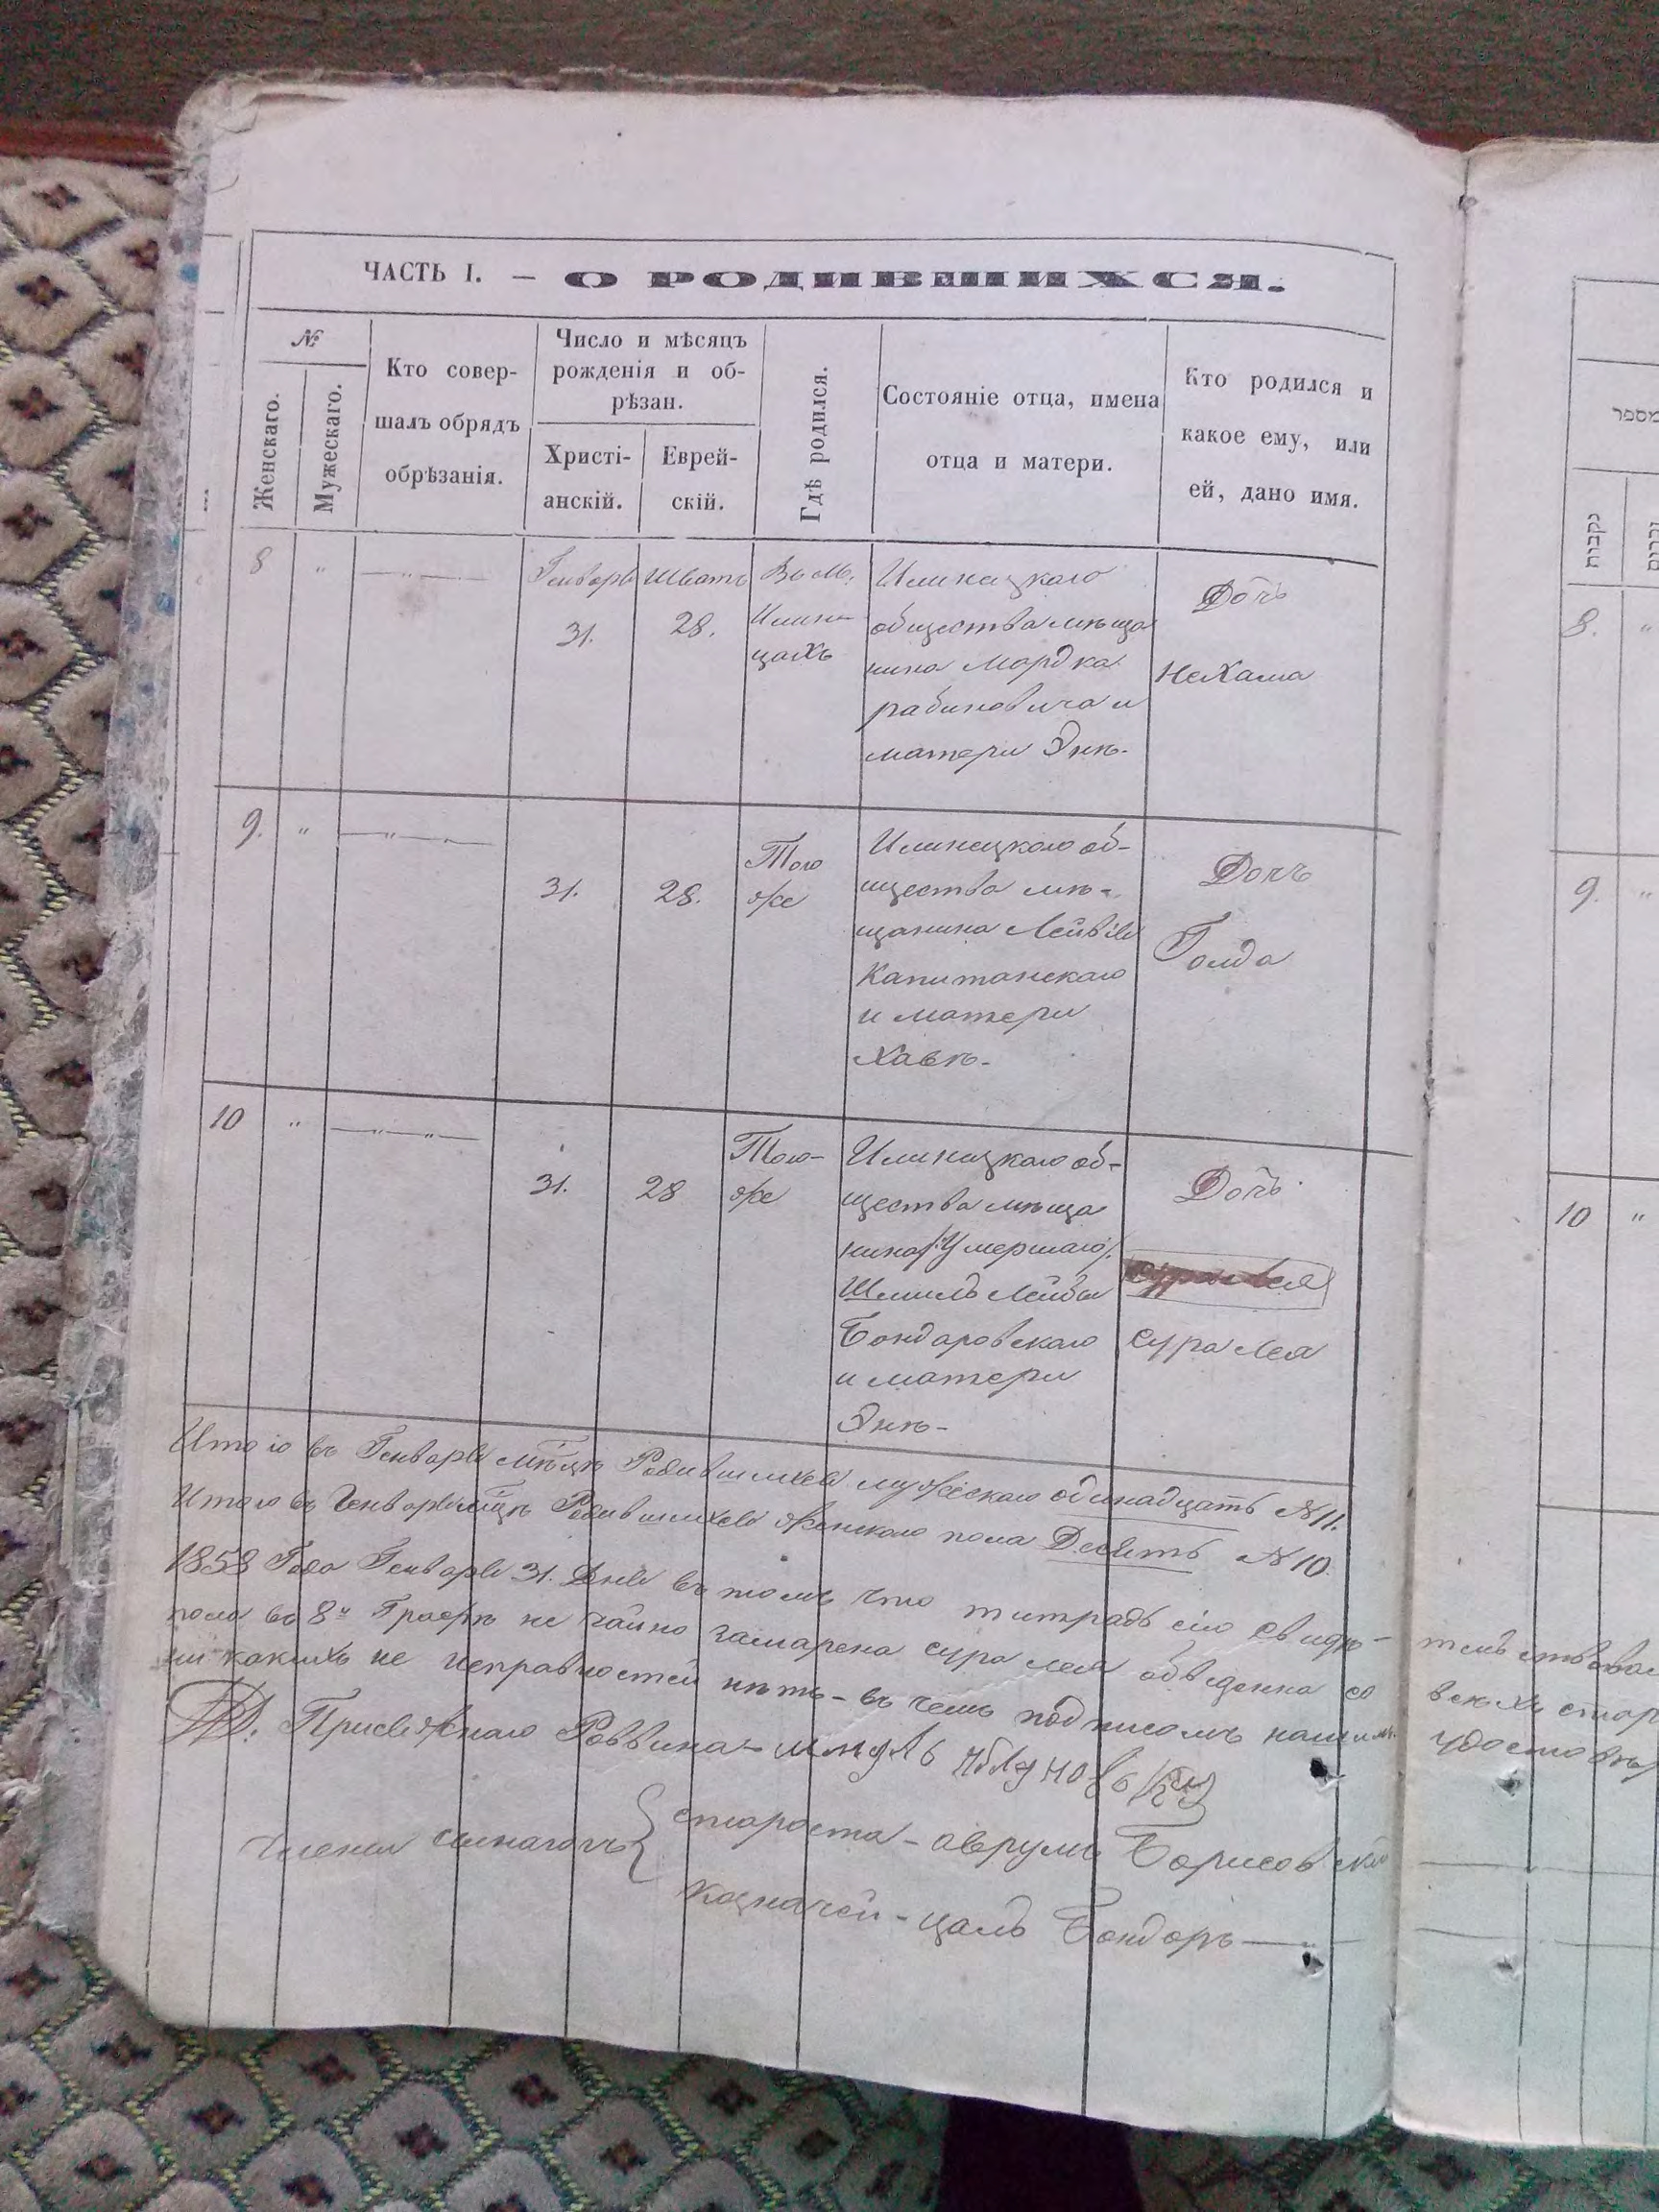 ЧАСТЬ I. — О РОДИВШИХСЯ.
№
Женскаго.
Мужескаго.
Кто совер-
шалъ обрядъ
обрѣзанія.
Число и мѣсяцъ
рожденія и об-
рѣзан.
Христі-
анскій.
Еврей-
скій.
Гдѣ родился.
Состояніе отца, имена
отца и матери.
Кто родился и
какое ему, или
ей, дано имя.
8
"
—"—
Генварь
31.
Шватъ
28.
Въ м.
Илин-
цахъ
Илинецкаго
общества мѣща
нина Мордка
рабиновича и
матери Энѣ.
Дочь
Нехама
9.
"
—"—
31.
28.
Того
же
Илинецкого об-
щества мѣ-
щанина Лейви
Капитанскаго
и матери
Хавѣ-
Дочь
Голда
10
"
—"—"—
31.
28
Того-
же
Илинецкаго об-
щества мѣща
нина /:Умершаго/:
Шмиль Лейбы
Бондаровскаго
и матери
Энѣ-
Дочь
сура Лея
сура Лея
Итого въ Генварѣ мѣцѣ Родившихся мужескаго одинадцать N 11.
Итого въ Генварѣ мцѣ Родившихся женскаго пола Десять N 10
1858 Года Генваря 31. Дня въ томъ что титрадь сію свидѣ-
пола въ 8й Графѣ не чайно замарена сура лея обведенна со
ни какихъ не исправностей нѣтъ - въ чемъ подписомъ нашимъ
Присяжнаго Раввина-
члени синагогъ
староста - аврумъ Борисовскій
Казначей - цаль Бондарь
מספר
נקבות
זכרים
8.
"
9.
"
10
"